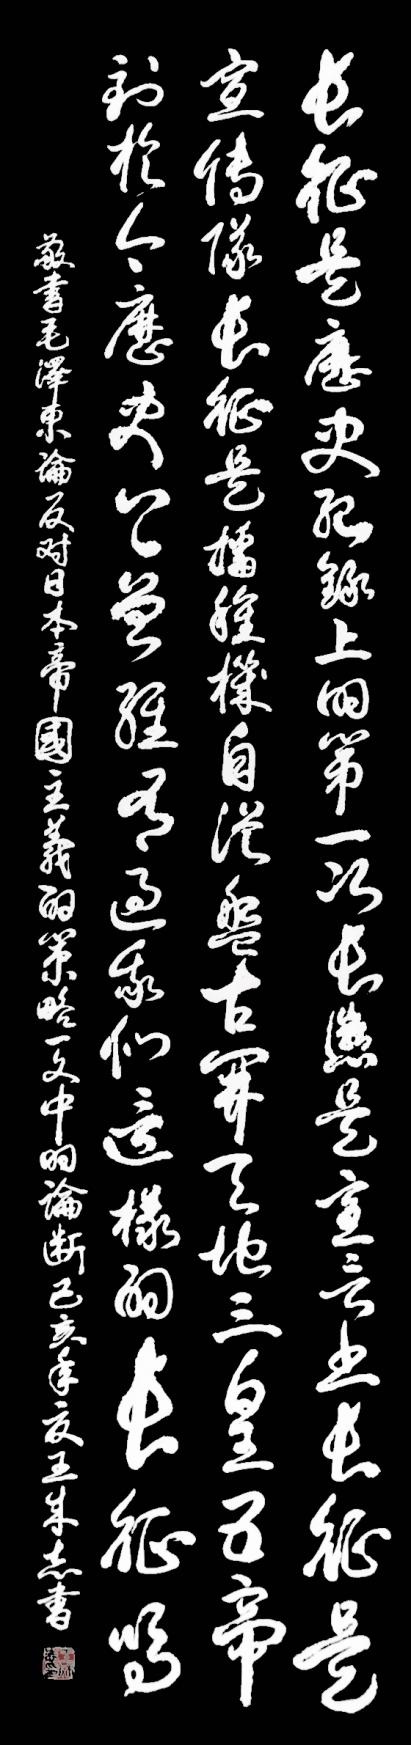 長征是歷史紀錄上的第一次長徵是宣言书長征是
宣傳隊長征是播種機自從盤古開天地三皇五帝
到於今歷史上曾經有過我們這樣的長征嗎
敬書毛澤東論反对日本帝國主義的策略一文中的論断己亥年夏王志書